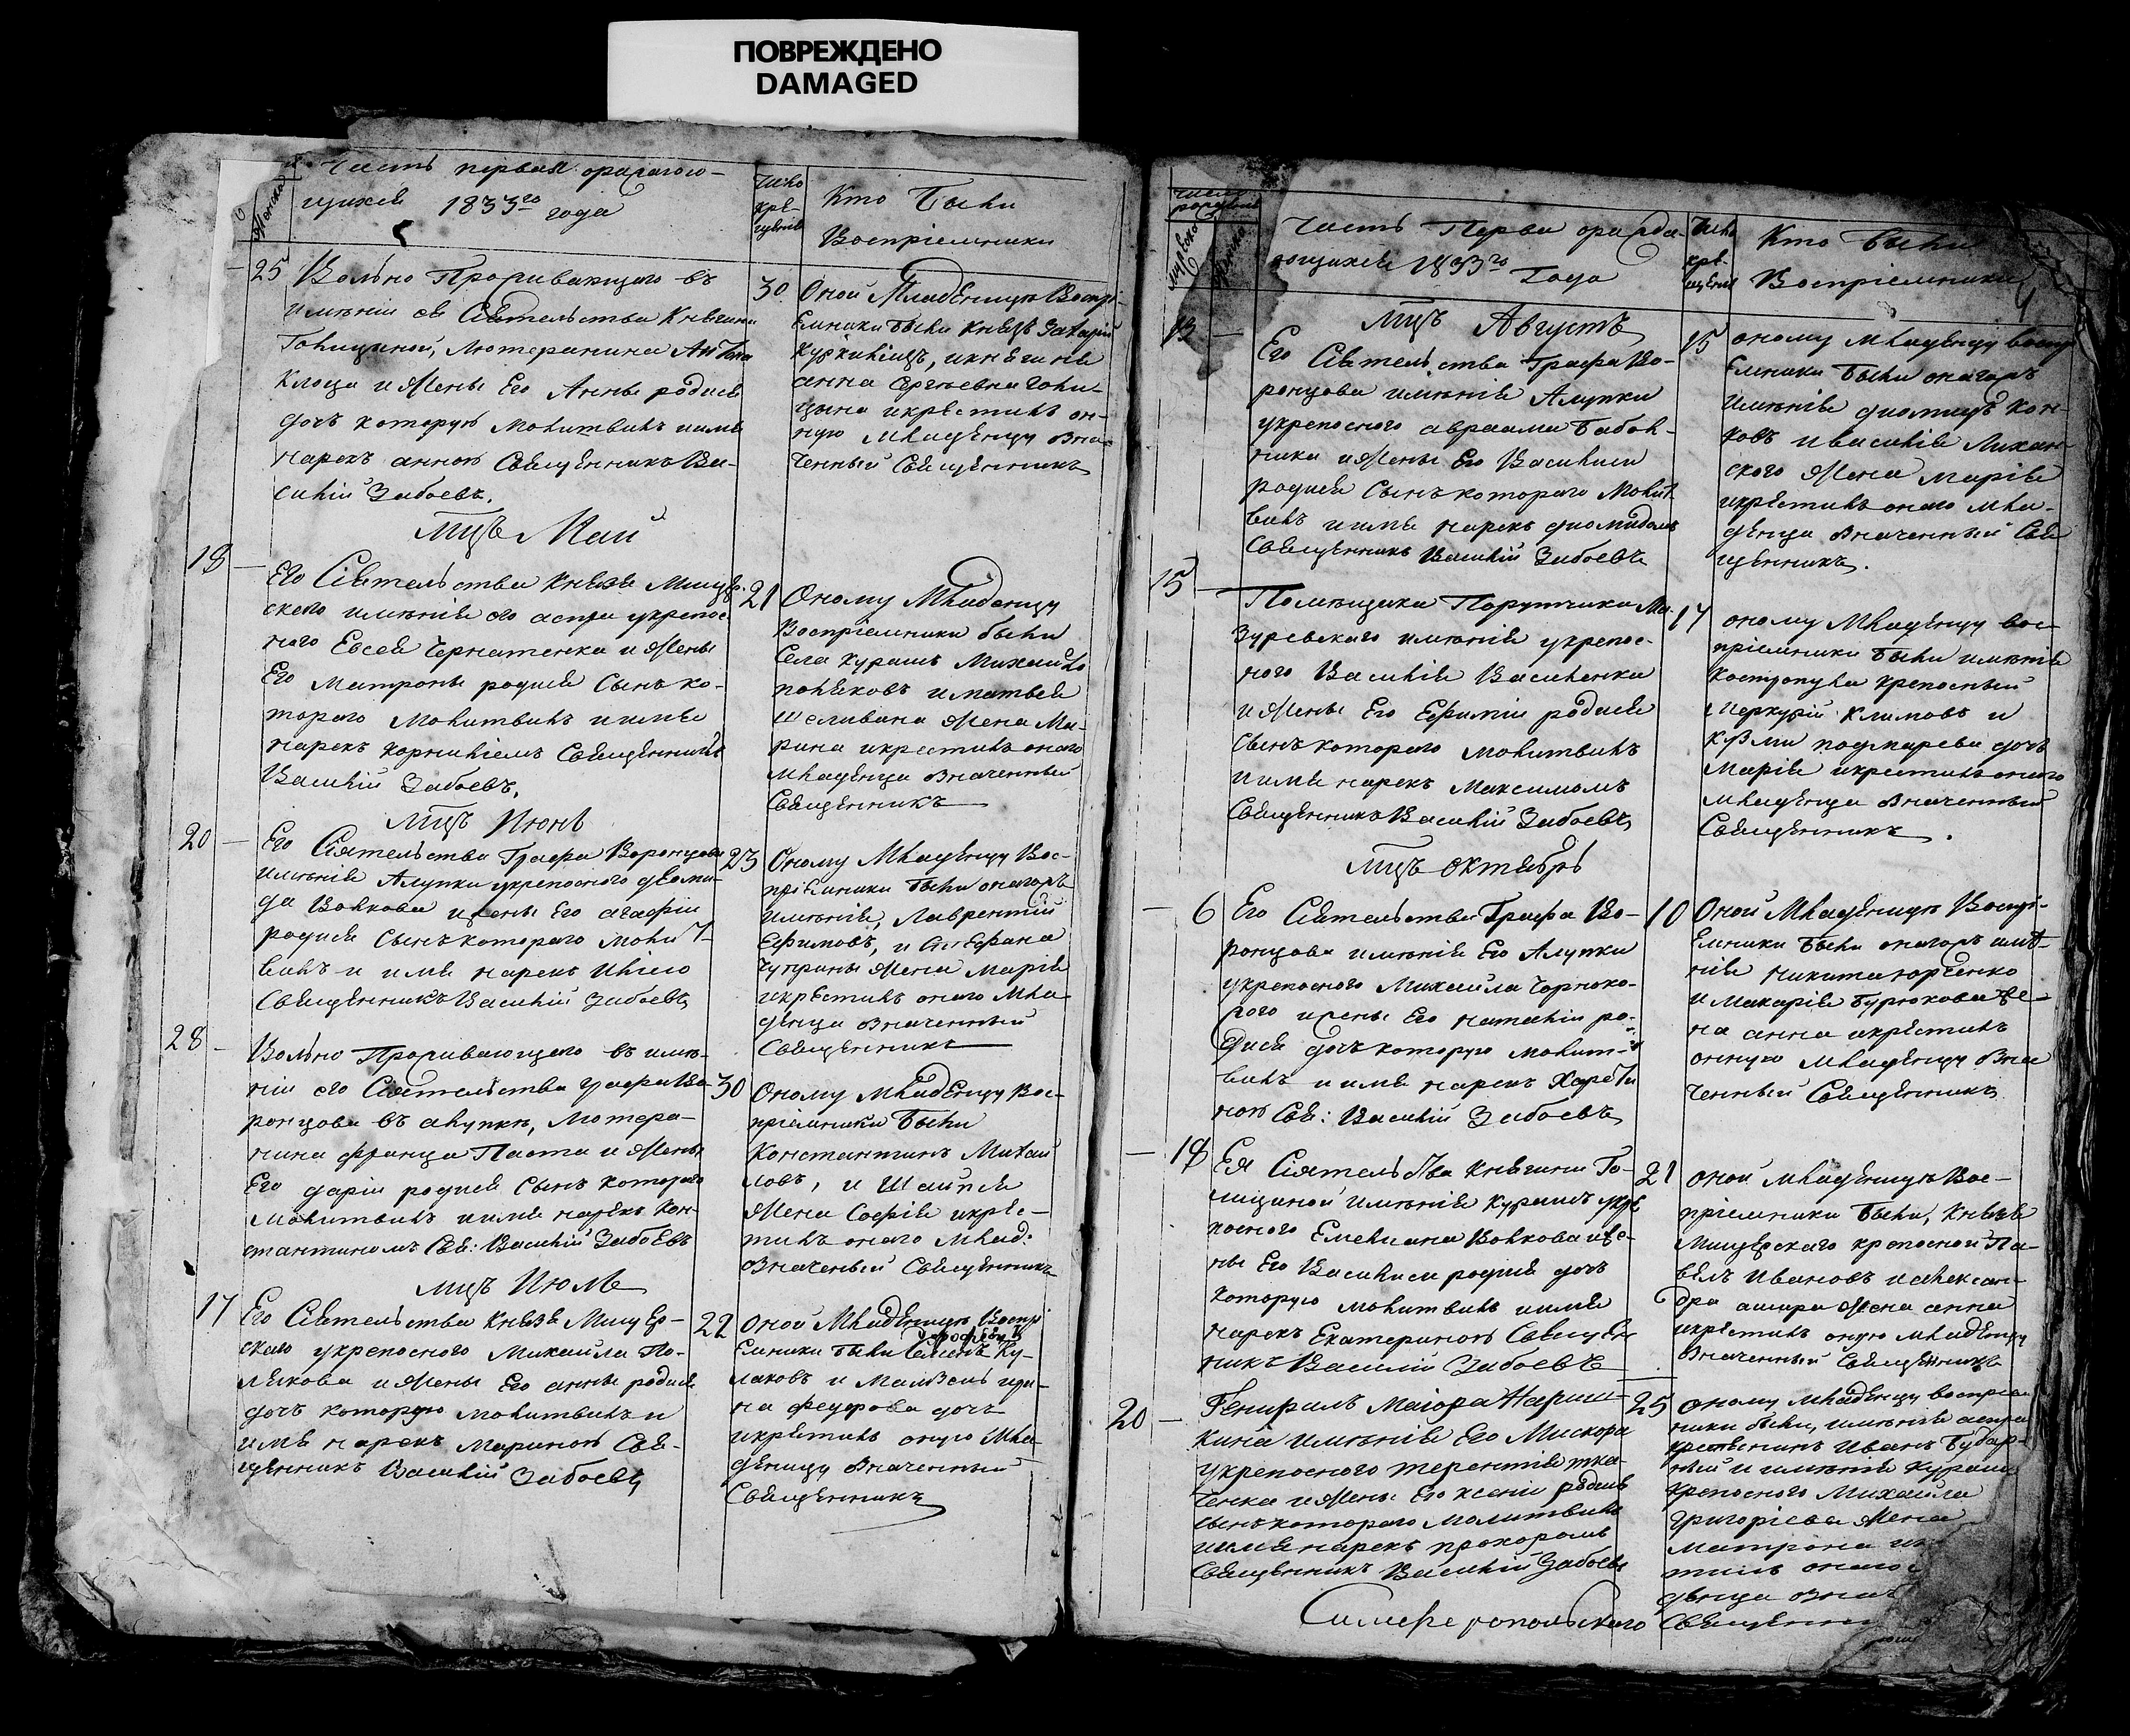 ПОВРЕЖДЕНО
DAMAGED
Часть первая оражаю-
щихся 1833го года
Число
кре-
щенія
Кто Были
Воспріемники
Женска
25
Вольно Проживающаго въ
имѣніи ея Сіятельства Княгини
Голициной, Лютеранина Антона
Клоца и Жены Его Анны родися
дочъ которую молитвилъ и имя
нарекъ анною Священникъ Ва-
силій Забоевъ.
30
Оной Младѣницы Воспрі-
Емники Были Князь Захарій
Херхиліцъ, и княгиня
анна сергѣевна голи-
цына и крѣстилъ он-
ную младѣнцу Зна-
ченный Священникъ
Мцъ Маи
18
Его Сіятельства Князя Мищер-
скаго имѣнія его аспри укрепос-
ного Евсея Чернатенка и Жены
Его Матроны родися Сынъ ко-
тораго Молитвилъ и имя
нарекъ корниліемъ Священникъ
Василій Забоевъ.
21
Оному Младенцу
Воспріемники были
Села Кураисъ Михаило
поляковъ и матвея
шеливана Жена Ма-
рина и крестилъ онаго
младенца Значенный
Священникъ
Мцъ Июнь
20
Его Сіятельства Графа Воронцова
имѣнія Алупки укрепосного деоми-
да Волкова и жены Его агафіи
родися Сынъ котораго молит-
вилъ и имя нарекъ Илією
Священникъ Василій Забоевъ
23
Оному Младенцу Вос-
пріемники Были онагожъ
имѣнія, Лаврентій
Ефимовъ, и Стефана
Чуприны Жена Марія
и крѣстилъ онаго мла-
дѣнца Значенный
Священникъ
28
Вольно Проживающего въ имѣ-
ніи его Сіятельства графа Во-
ронцова въ алупкѣ, Лютера-
нина Франца Паста и Жены
Его даріи родися Сынъ котораго
молитвилъ и имя нарекъ Кон-
стантиномъ Свя: Василій Забоевъ
30
Оному младенцу Вос-
пріемники Были
Константинъ Михай-
ловъ, и Шайпея
Жена Софія и крѣс-
тилъ онаго млад:
Значеный Священникъ
мцъ Июль
17
Его Сіятельства Князя Мищер-
скаго укрепосного Михаила По-
лякова и Жены Его анны родися
дочъ которую молитвилъ и
имя нарекъ Мариною Свя-
щенникъ Василій Забоевъ
22
Оной Младенцы Воспрі
Емники Были Семенъ Ку-
лаковъ и
на Федорова дочъ
и крѣстилъ оную мла-
деницу Значенный
Священникъ
Число
рожденія
мужеска
женска
Часть Перва оражда-
ющихся 1833го Года
Число
кре-
щенія
Кто Были
Воспріемники
4
Мцъ Августъ
13
Его Сіятельства Графа Во-
ронцова имѣнія Алупки
укрепосного авраама Бабол-
ника и Жены Его Василиси
родися Сынъ котораго Молит-
вилъ и имя нарекъ диомидомъ
Священникъ Василій Забоевъ
15
оному младенцу воспр
Емники Были онагожъ
имѣнія диомидъ Кон-
ковъ и василія Лихан-
ского Жена марія
и крѣстилъ онаго мла-
денца Значенный Свя
щенникъ.
15
Помѣщика Порутчика Ма-
зуревскаго имѣнія укрепос-
ного Василія Василенка
и Жены Его Ефиміи родися
сынъ котораго молитвилъ
и имя нарекъ Максимомъ
Священникъ Василій Забоевъ
17
оному Младенцу вос-
пріемники Были имѣнія
Костропула крепосный
меркурій Климовъ и
дочъ
Марія и крестилъ онаго
младенца Значенный
Священникъ.
Мцъ октябрь
6
Его Сіятельства Графа Во-
ронцова имѣнія Его Алупки
укрепосного Михаила Чорноко-
рого и жены Его наталіи ро-
дися дочъ которую молит-
вилъ и имя нарекъ Харѣти
ною Свя: Василій Забоевъ
10
Оной Младенцы Воспрі-
Емники Были онагожъ имѣ-
нія никита юрченко
и Макарія Бурюкова же-
на анна и крѣстилъ
онную младенцу Зна
ченный Священникъ
18
Ея Сіятельства Княгини Го-
лициной имѣнія Кураисъ укре
посного Емелиана Волкова и же-
ны Его Василиси родися дочъ
которую молитвилъ и имя
нарекъ Екатериною Священ
никъ Василій Забоевъ
21
оной младенцы Вос-
пріемники Были, Князя
Мищерскаго крепосной Па-
велъ Ивановъ и алексан-
дра Жена анна
и крѣстилъ оную младенцу
Значенный Священникъ
20
Гениралъ Маіора Нариш-
кина имѣнія Его Мисхора
укрепосного терентія тка-
ченка и Жены Его ксеніи родися
сынъ котораго молитвилъ
и имя нарекъ прохоромъ
Священникъ Василій Забоевъ
25
оному младенцу воспріем
ники были, имѣнія аспри
крестьянинъ Иванъ Бубар-
ный и имѣнія Кураисъ
крепосного Михаила
григоріева Жена
матрона и к
тилъ онаго
денца Знач
Священни
Симферопольскаго